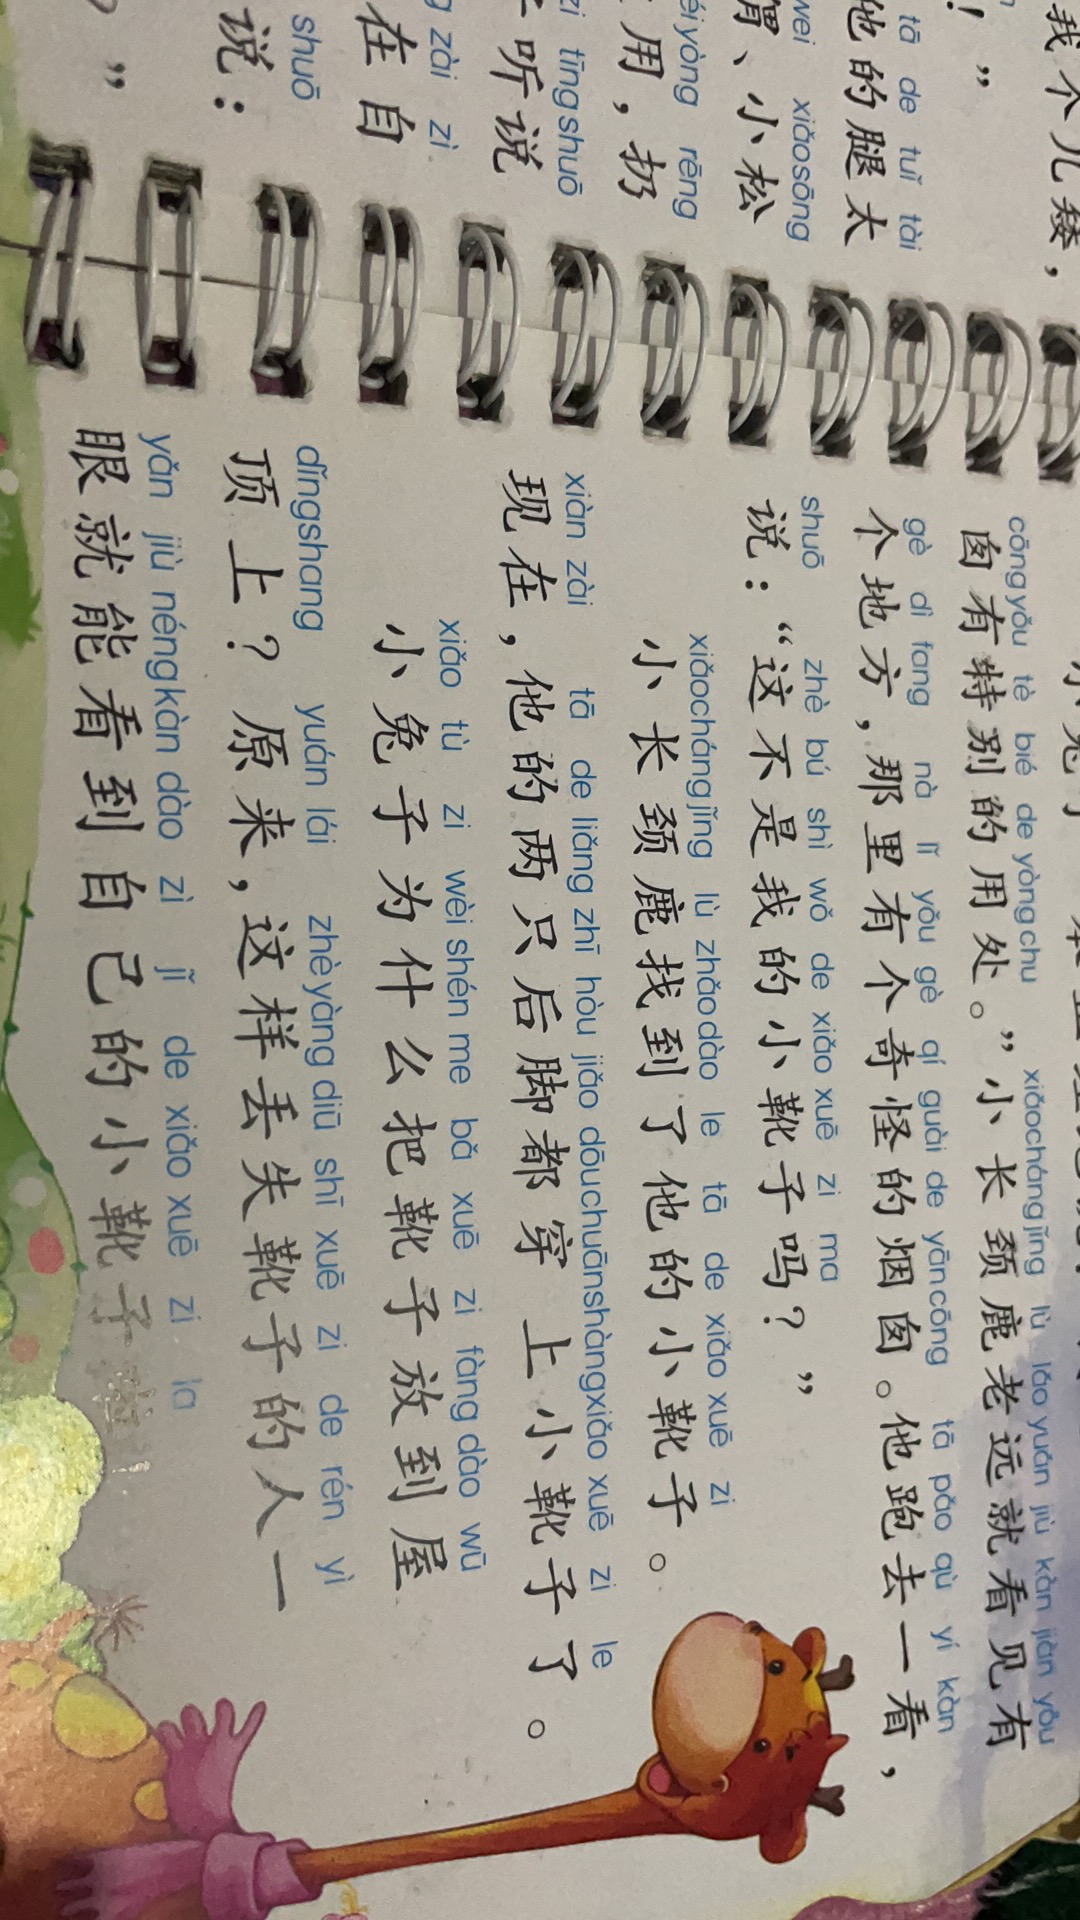 我个儿矮，
！”
tā de tuǐ tài
他的腿太
wei xiǎosōng
猬、小松
yòng rēng
用，扔
zi tīngshuō
听说
zài zì
在自
shuō
说：
”
cōngyǒu tè bié de yòngchu xiǎochángjǐng lù lǎo yuǎn jiù kàn jiàn yǒu
囱有特别的用处。”小长颈鹿老远就看见有
gè dì fang nà lǐ yǒu gè qí guài de yāncōng tā pǎo qù yí kàn
个地方，那里有个奇怪的烟囱。他跑去一看，
shuō zhè bú shì wǒ de xiǎo xuē zi ma
说：“这不是我的小靴子吗？”
xiǎochángjǐng lù zhǎodào le tā de xiǎo xuē zi
小长颈鹿找到了他的小靴子。
xiàn zài tā de liǎng zhī hòu jiǎo dōuchuānshàngxiǎo xuē zi le
现在，他的两只后脚都穿上小靴子了。
xiǎo tù zi wèi shén me bǎ xuē zi fàng dào wū
小兔子为什么把靴子放到屋
dǐngshang yuán lái zhèyàng diū shī xuē zi de rén yì
顶上？原来，这样丢失靴子的人一
yǎn jiù néngkàn dào zì jǐ de xiǎo xuē zi la
眼就能看到自己的小靴子